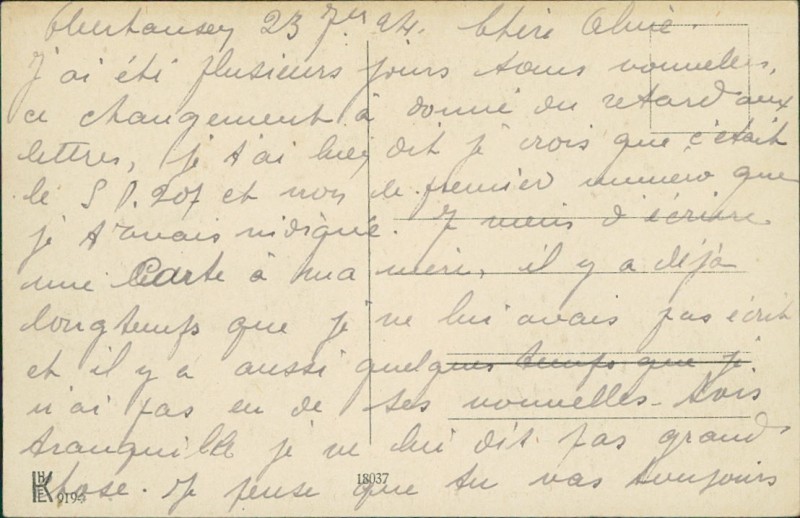 Oberhausen 23 7er 24. Chère Aline.
J'ai été plusieurs jours sans nouvelles,
ce changement à donné du retard aux
lettres, je t'ai bien dit je crois que c'était
le S P. 207 et non le premier numero que
je t'avais indiqué. Je viens d'écrire
une Carte à ma mère, il y a déjà
longtemps que je ne lui avais pas écrit
et il y a aussi quelques temps que je
n'ai pas eu de ses nouvelles. Sois
tranquille je ne lui dit pas grand
chose. Je pense que tu vas toujours
18037